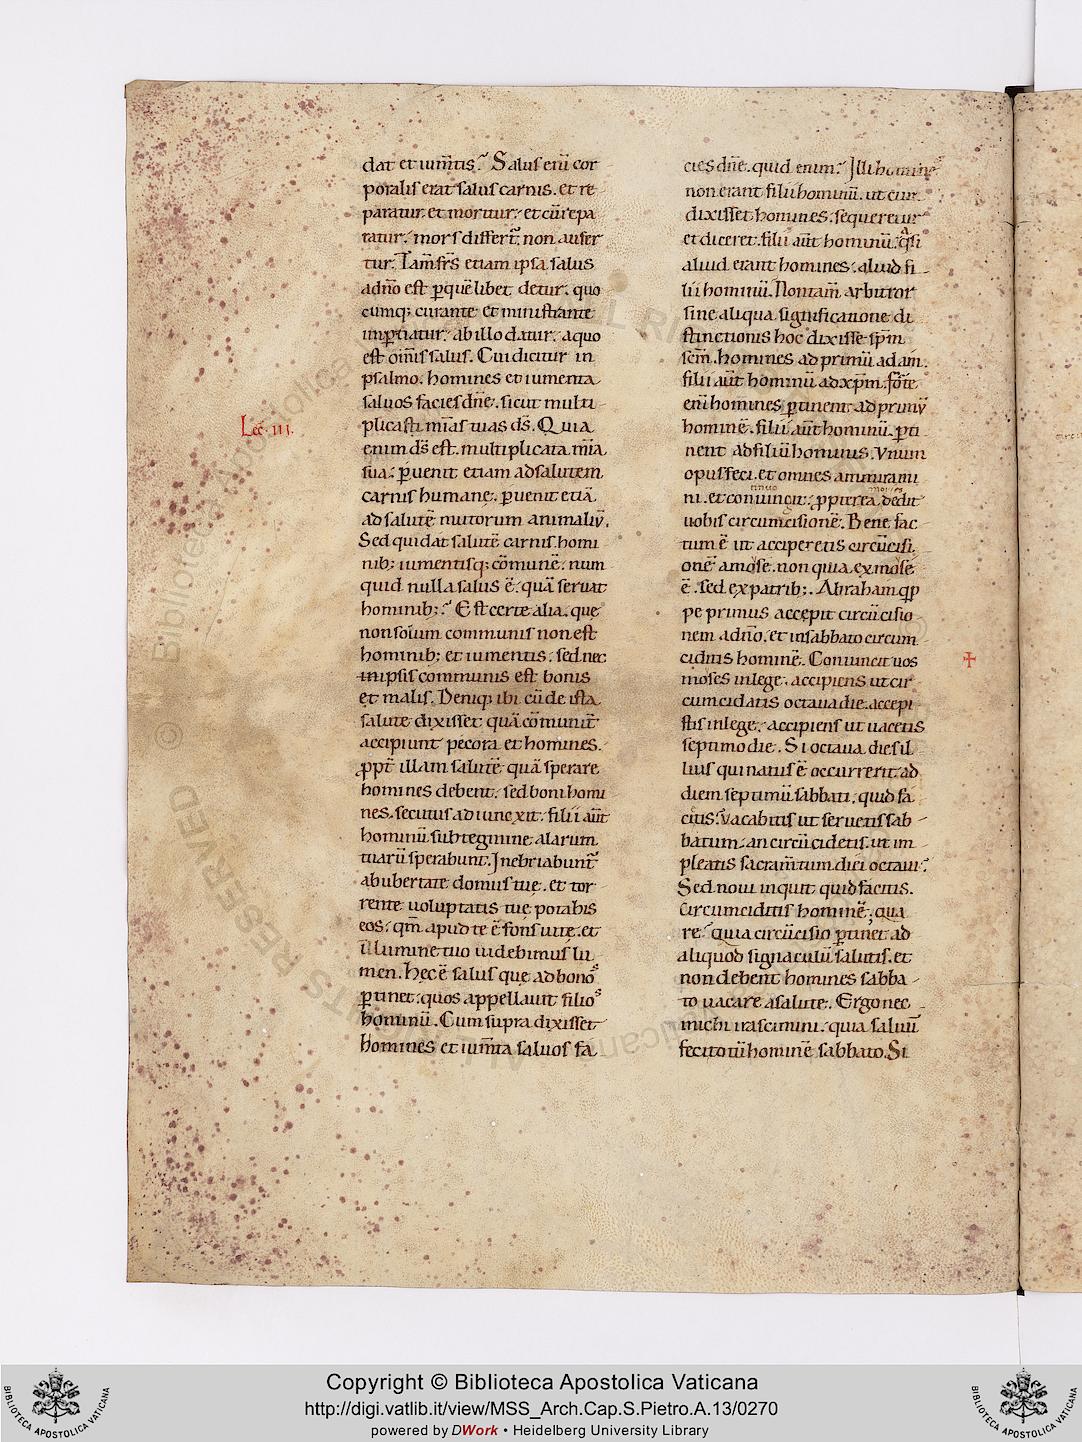 dat et ium̅tis? Salus eni̅ cor
poralis erat salus carnis. et re
paratur. et moritur. et cu̅ repa
ratur. mors differt̅. non aufer
tur. Tam̅ fr̅s etiam ipsa salus
a dn̅o est p̲ que̅libet detur. quo
cumq; curante et ministrante
imp̲tiatur. ab illo datur. a quo
est om̅is salus. Cui dicitur in
psalmo. homines et iumenta
saluos facies dn̅e. sicut multi
plicasti mi̅as tuas ds̅. Quia
Lec̅. III.
enim ds̅ est. multiplicata mi̅a
sua. p̲uenit etiam ad salutem
carnis humane. p̲uenit etia̅
ad salute̅ mutorum animaliu̅.
Sed qui dat salute̅ carnis. homi
nib; iumentisq; co̅mune̅. num
quid nulla salus e̅. qua̅ seruat
hominib;? Est certe alia. que
non solum communis non est
hominib; et iumentis. sed nec
in ipsis communis est bonis
et malis. Deniq; ibi cu̅ de ista
salute dixisset qua̅ co̅munit̅
accipiunt pecora et homines.
p̲pt̅ illam salute̅ qua̅ sperare
homines debent. sed boni homi
nes. secutus adiunexit. filii aut̅
hominu̅ sub tegmine alarum
tuaru̅ sperabunt. Inebriabunt̅
ab ubertate domus tue. et tor
rente uoluptatis tue potabis
eos. qm̅ apud te e̅ fons uite. et
in lumine tuo uidebimus lu
men. Hec e̅ salus que ad bonos
p̲tinet. quos appellauit filios
hominu̅. Cum supra dixisset
homines et ium̅ta saluos fa
cies dn̅e. quid enim? Illi homines
non erant filii hominu̅. ut cum
dixisset homines. sequeretur
et diceret. filii aut̅ hominu̅. qᵃsi
aliud erant homines. aliud fi
lii hominu̅. Non tam̅ arbitror
sine aliqua significatione di
stinctionis hoc dixisse sp̅m
sc̅m. homines ad primu̅ adam.
filii aut̅ hominu̅ ad xp̅m. fo̅te
eni̅ homines p̲tinent ad primu̅
homine̅. filii aut̅ hominu̅. p̲ti
nent ad filiu̅ hominis. Vnum
opus feci. et omnes ammirami
ni. et coniungit. p̲pterea dedit
moyses
uobis circumcisione̅. Bene fac
tum e̅ ut acciperetis circu̅cisi
one̅ a mose. non quia ex mose
e̅. sed ex patrib;. Abraham qp̲
pe primus accepit circu̅cisio
nem a dn̅o. et in sabbato circum
ciditis homine̅. Conuincit uos
moses in lege. accipiens ut cir
cumcidatis octaua die. accepi
stis in lege. accipiens ut uacetis
septimo die. Si octaua dies il
lius qui natus e̅ occurrerit ad
diem septimu̅ sabbati. quid fa
citis? vacabitis ut seruetis sab
batum. an circu̅cidetis. ut im
pleatis sacram̅tum diei octaui?
Sed noui inquit quid facitis.
Circumciditis homine̅; qua
re? quia circu̅cisio p̲tinet ad
aliquod signaculu̅ salutis. et
non debent homines sabba
to uacare a salute. Ergo nec
michi irascimini. quia saluu̅
feci totu̅ homine̅ sabbato. Si
Copyright © Biblioteca Apostolica Vaticana
http://digi.vatlib.it/view/MSS_Arch.Cap.S.Pietro.A.13/0270
powered by DWork • Heidelberg University Library
BIBLIOTECA APOSTOLICA VATICANA
BIBLIOTECA APOSTOLICA VATICANA